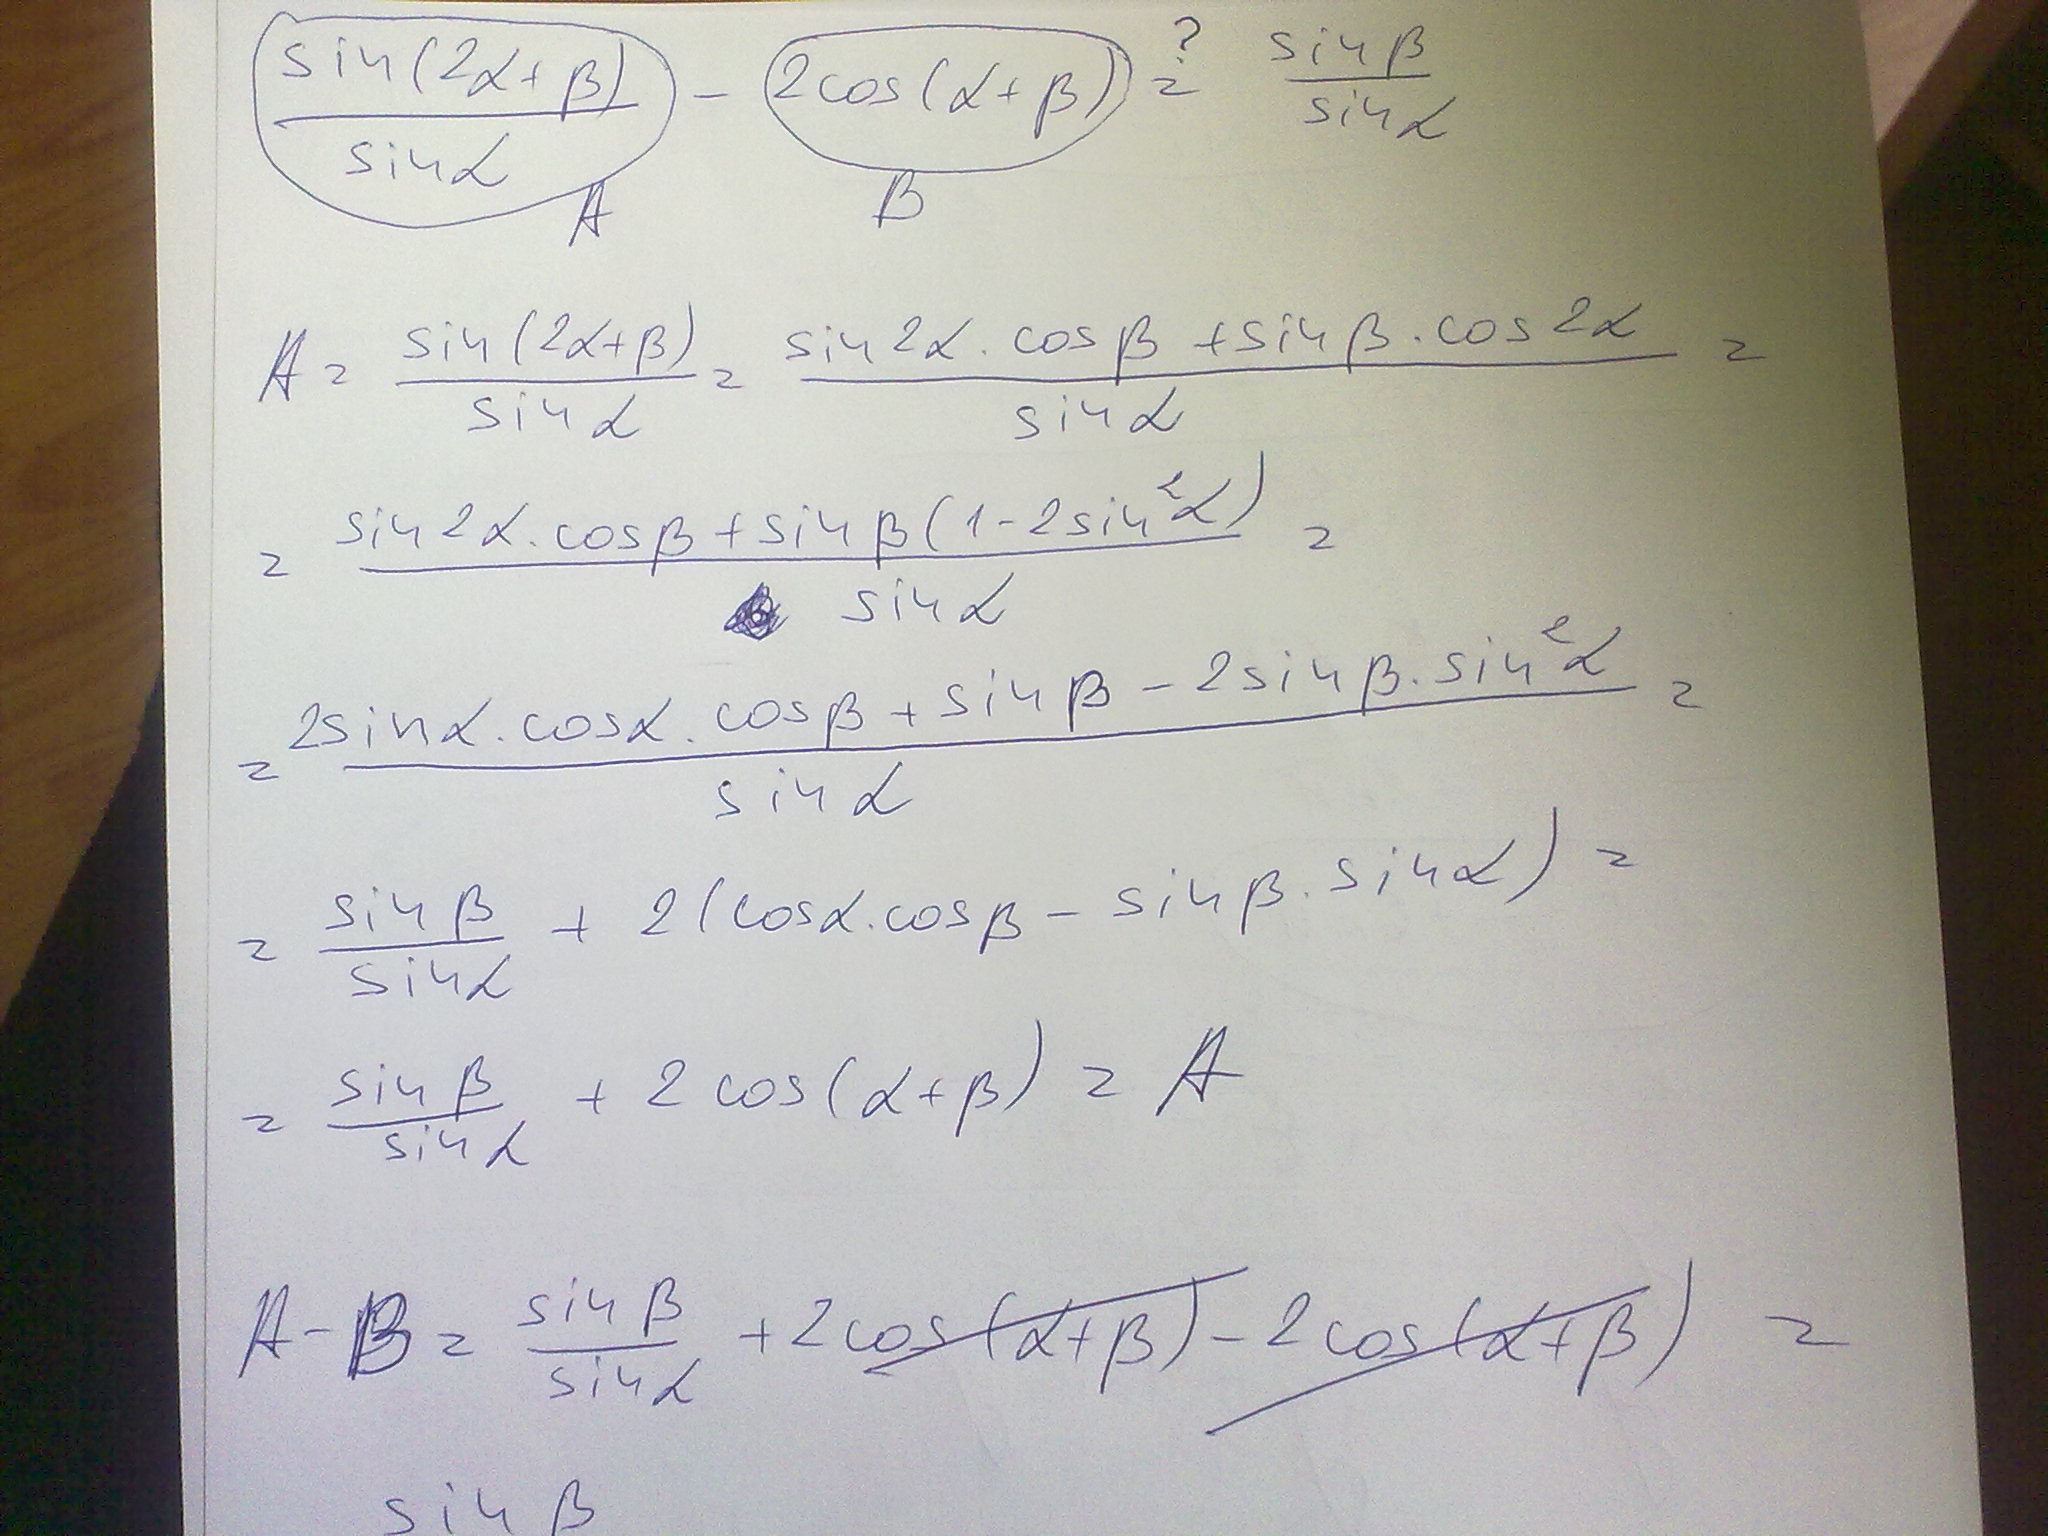 sin(2α+β)/sinα − 2cos(α+β) ?= sinβ/sinα
A B
A = sin(2α+β)/sinα = (sin2α·cosβ + sinβ·cos2α)/sinα =
= (sin2α·cosβ + sinβ(1−2sin²α))/sinα =
= (2sinα·cosα·cosβ + sinβ − 2sinβ·sin²α)/sinα =
= sinβ/sinα + 2(cosα·cosβ − sinβ·sinα) =
= sinβ/sinα + 2cos(α+β) = A
A−B = sinβ/sinα + 2cos(α+β) − 2cos(α+β) =
sinβ